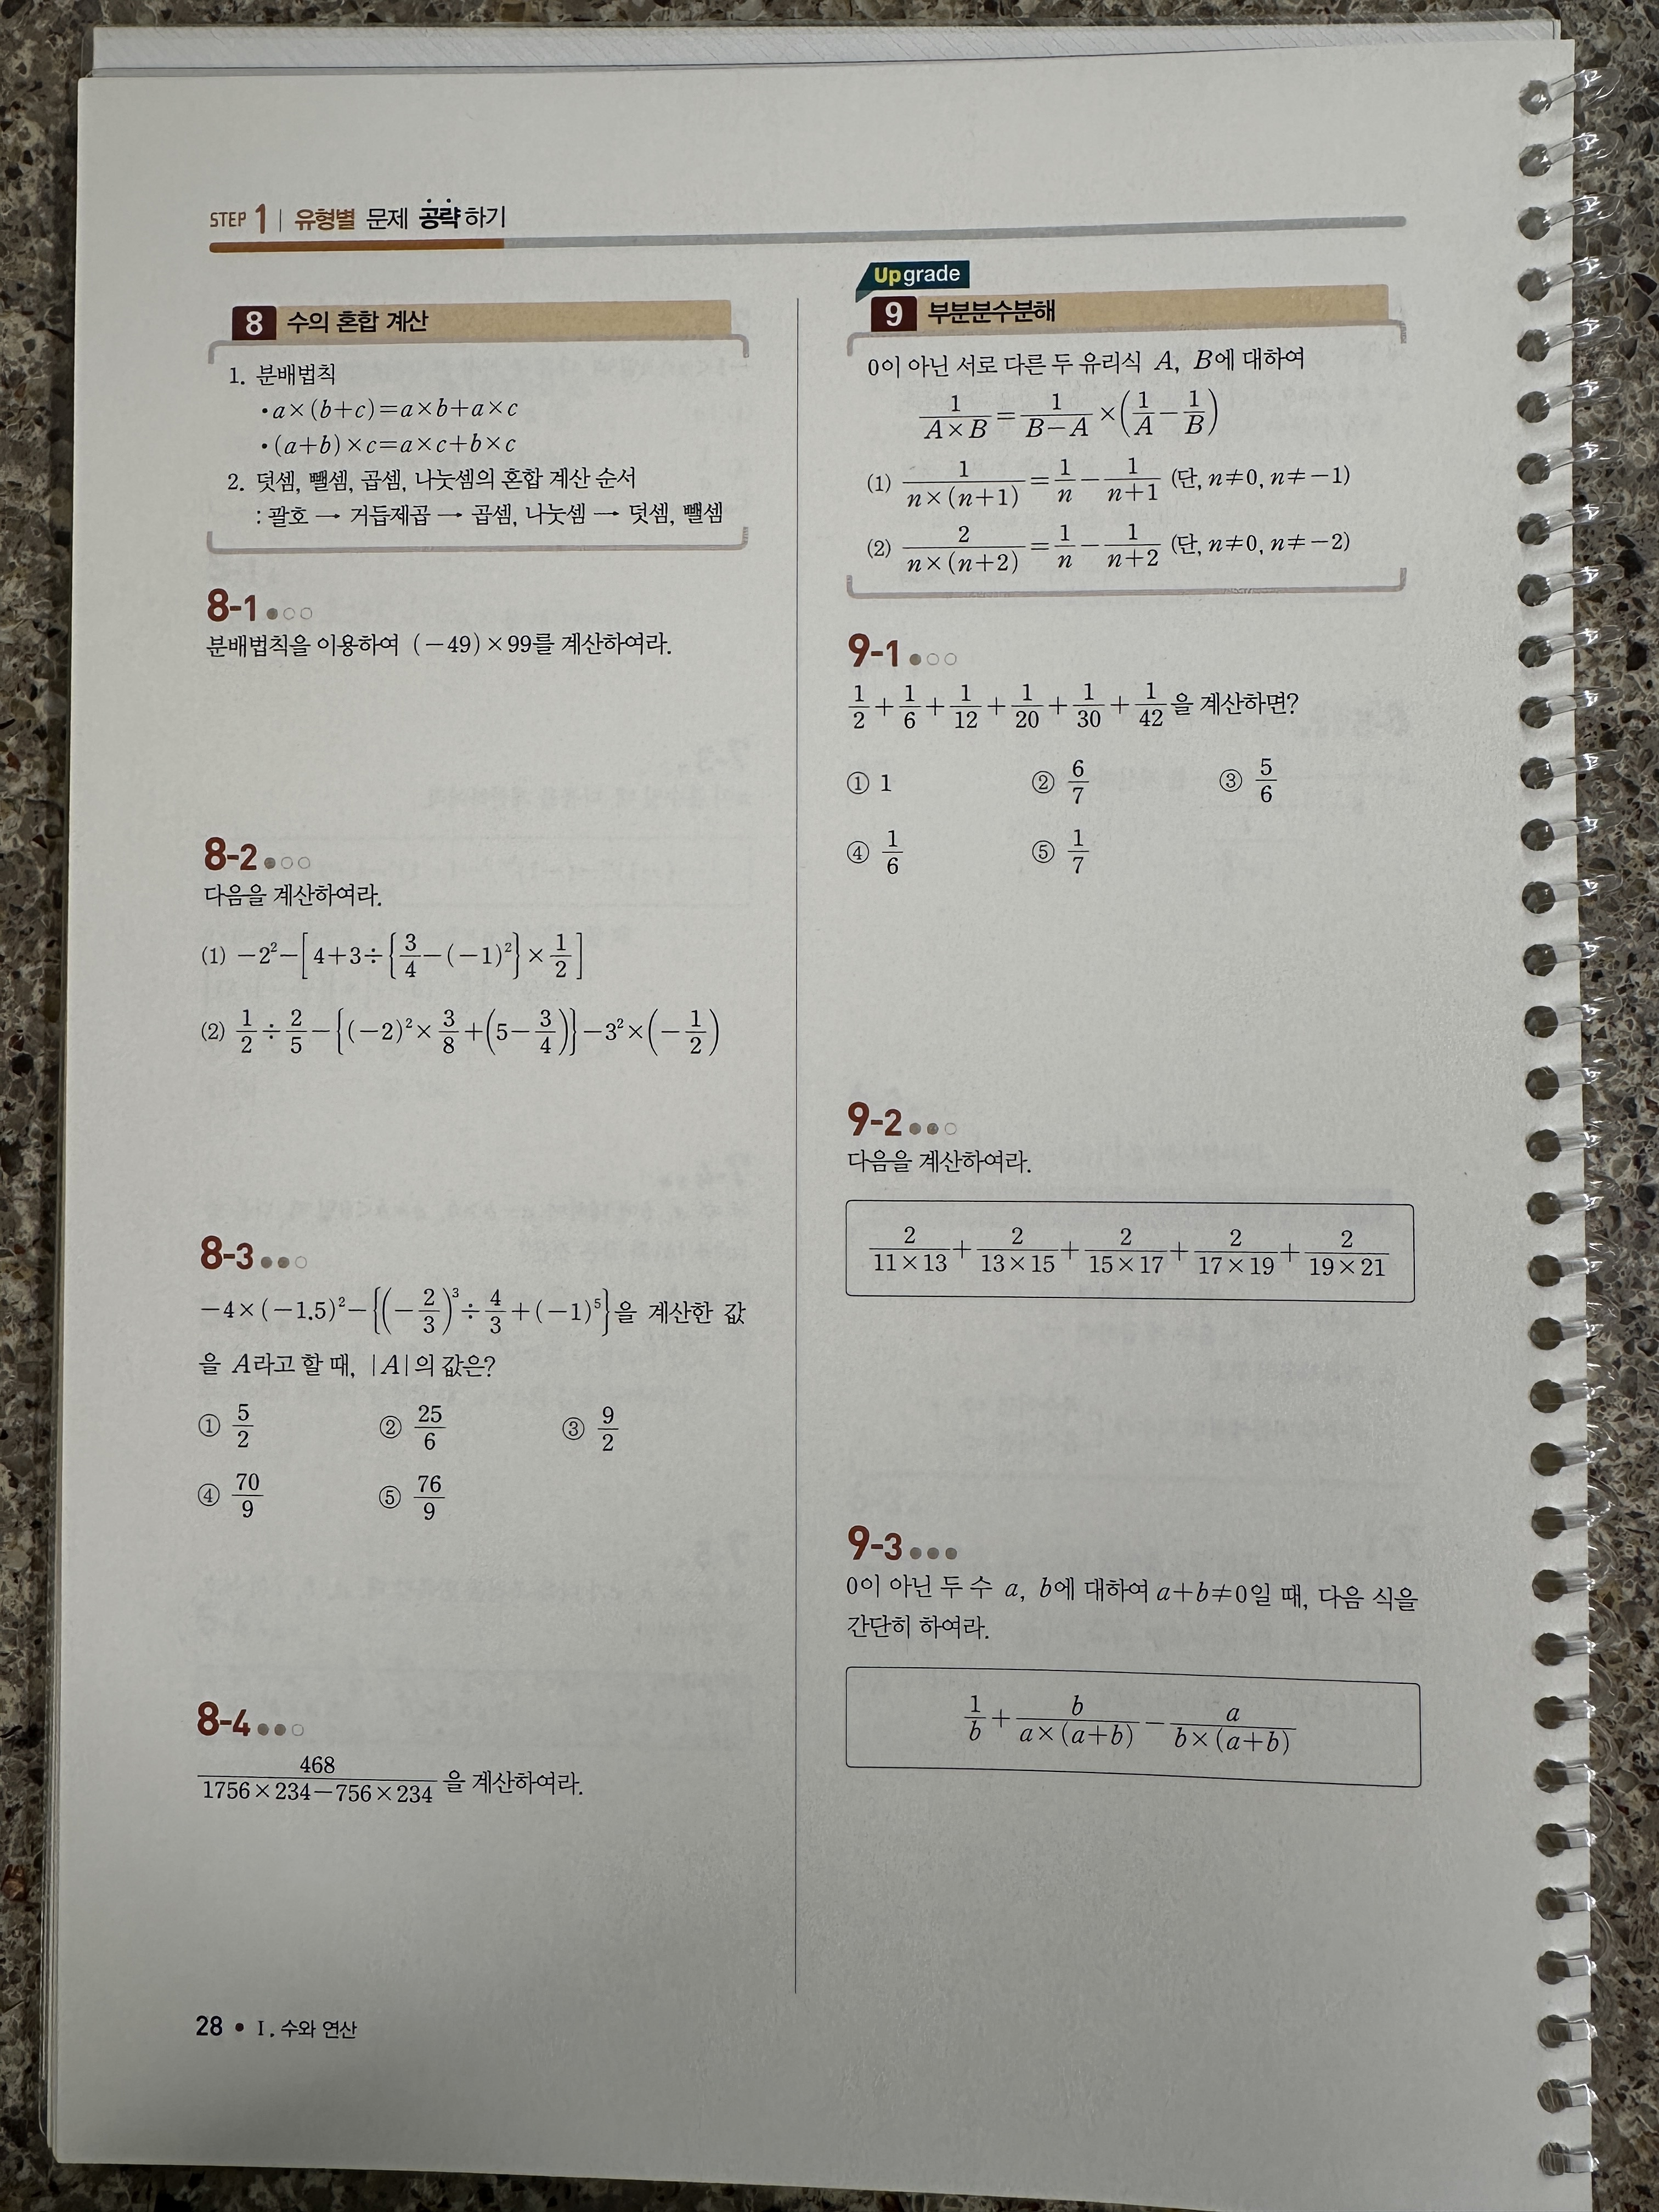 STEP 1 | 유형별 문제 공략하기
8 수의 혼합 계산
1. 분배법칙
• a×(b+c)=a×b+a×c
• (a+b)×c=a×c+b×c
2. 덧셈, 뺄셈, 곱셈, 나눗셈의 혼합 계산 순서
: 괄호 → 거듭제곱 → 곱셈, 나눗셈 → 덧셈, 뺄셈
8-1 ●○○
분배법칙을 이용하여 (−49)×99를 계산하여라.
8-2 ●○○
다음을 계산하여라.
(1) −2²−[4+3÷{3/4−(−1)²}×1/2]
(2) 1/2÷2/5−{(−2)²×3/8+(5−3/4)}−3²×(−1/2)
8-3 ●●○
−4×(−1.5)²−{(−2/3)³÷4/3+(−1)⁵}을 계산한 값
을 A라고 할 때, |A|의 값은?
① 5/2 ② 25/6 ③ 9/2
④ 70/9 ⑤ 76/9
8-4 ●●○
468/(1756×234−756×234) 을 계산하여라.
Upgrade
9 부분분수분해
0이 아닌 서로 다른 두 유리식 A, B에 대하여
1/(A×B)=1/(B−A)×(1/A−1/B)
(1) 1/(n×(n+1))=1/n−1/(n+1) (단, n≠0, n≠−1)
(2) 2/(n×(n+2))=1/n−1/(n+2) (단, n≠0, n≠−2)
9-1 ●○○
1/2+1/6+1/12+1/20+1/30+1/42을 계산하면?
① 1 ② 6/7 ③ 5/6
④ 1/6 ⑤ 1/7
9-2 ●●○
다음을 계산하여라.
2/(11×13)+2/(13×15)+2/(15×17)+2/(17×19)+2/(19×21)
9-3 ●●●
0이 아닌 두 수 a, b에 대하여 a+b≠0일 때, 다음 식을
간단히 하여라.
1/b+b/(a×(a+b))−a/(b×(a+b))
28 • Ⅰ. 수와 연산